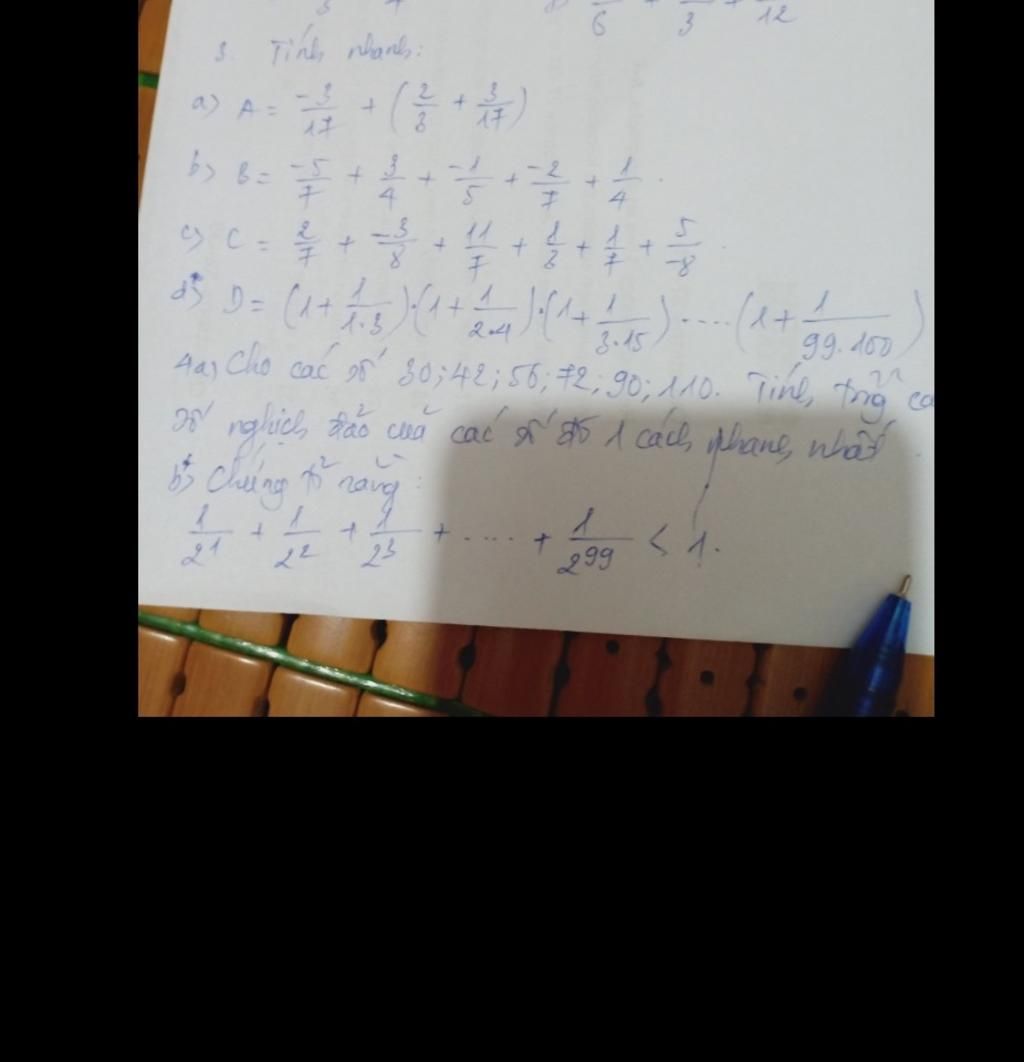 6 3 12
3. Tính nhanh:
a) A = -3/17 + (2/3 + 3/17)
b) B = -5/7 + 3/4 + -1/5 + -2/7 + 1/4.
c) C = 2/7 + -3/8 + 11/7 + 1/3 + 1/7 + 5/-8.
d*) D = (1 + 1/1.3).(1 + 1/2.4).(1 + 1/3.15).....(1 + 1/99.100)
4a) Cho các số 30; 42; 56; 72; 90; 110. Tính tổng
số nghịch đảo của các số đó 1 cách nhanh nhất.
b*) Chứng tỏ rằng:
1/2^1 + 1/2^2 + 1/2^3 + .... + 1/2^99 < 1.